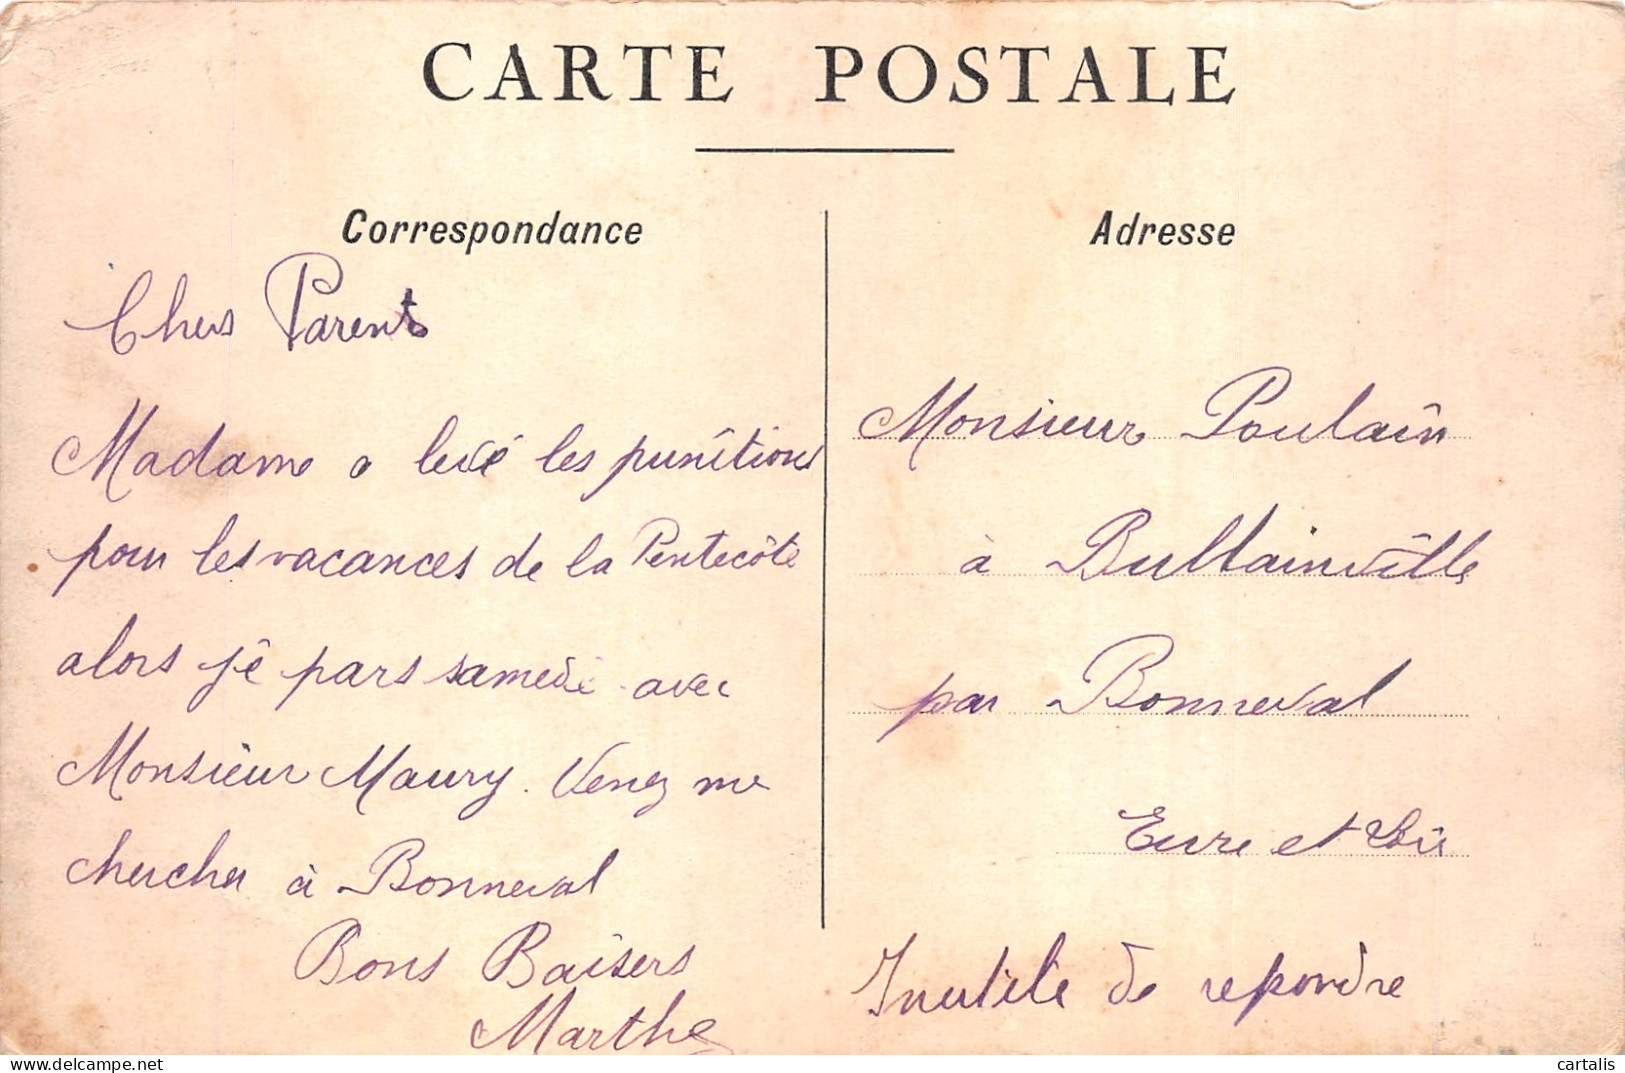 CARTE POSTALE
Correspondance
Chers Parents
Madame a levé les punitions
pour les vacances de la Pentecôte
alors je pars samedi avec
Monsieur Maury. Venez me
chercher à Bonneval
Bons Baisers
Marthe
Adresse
Monsieur Poulain
à Bullainville
par Bonneval
Eure et Loir
Inutile de repondre
delcampe.net
cartalis